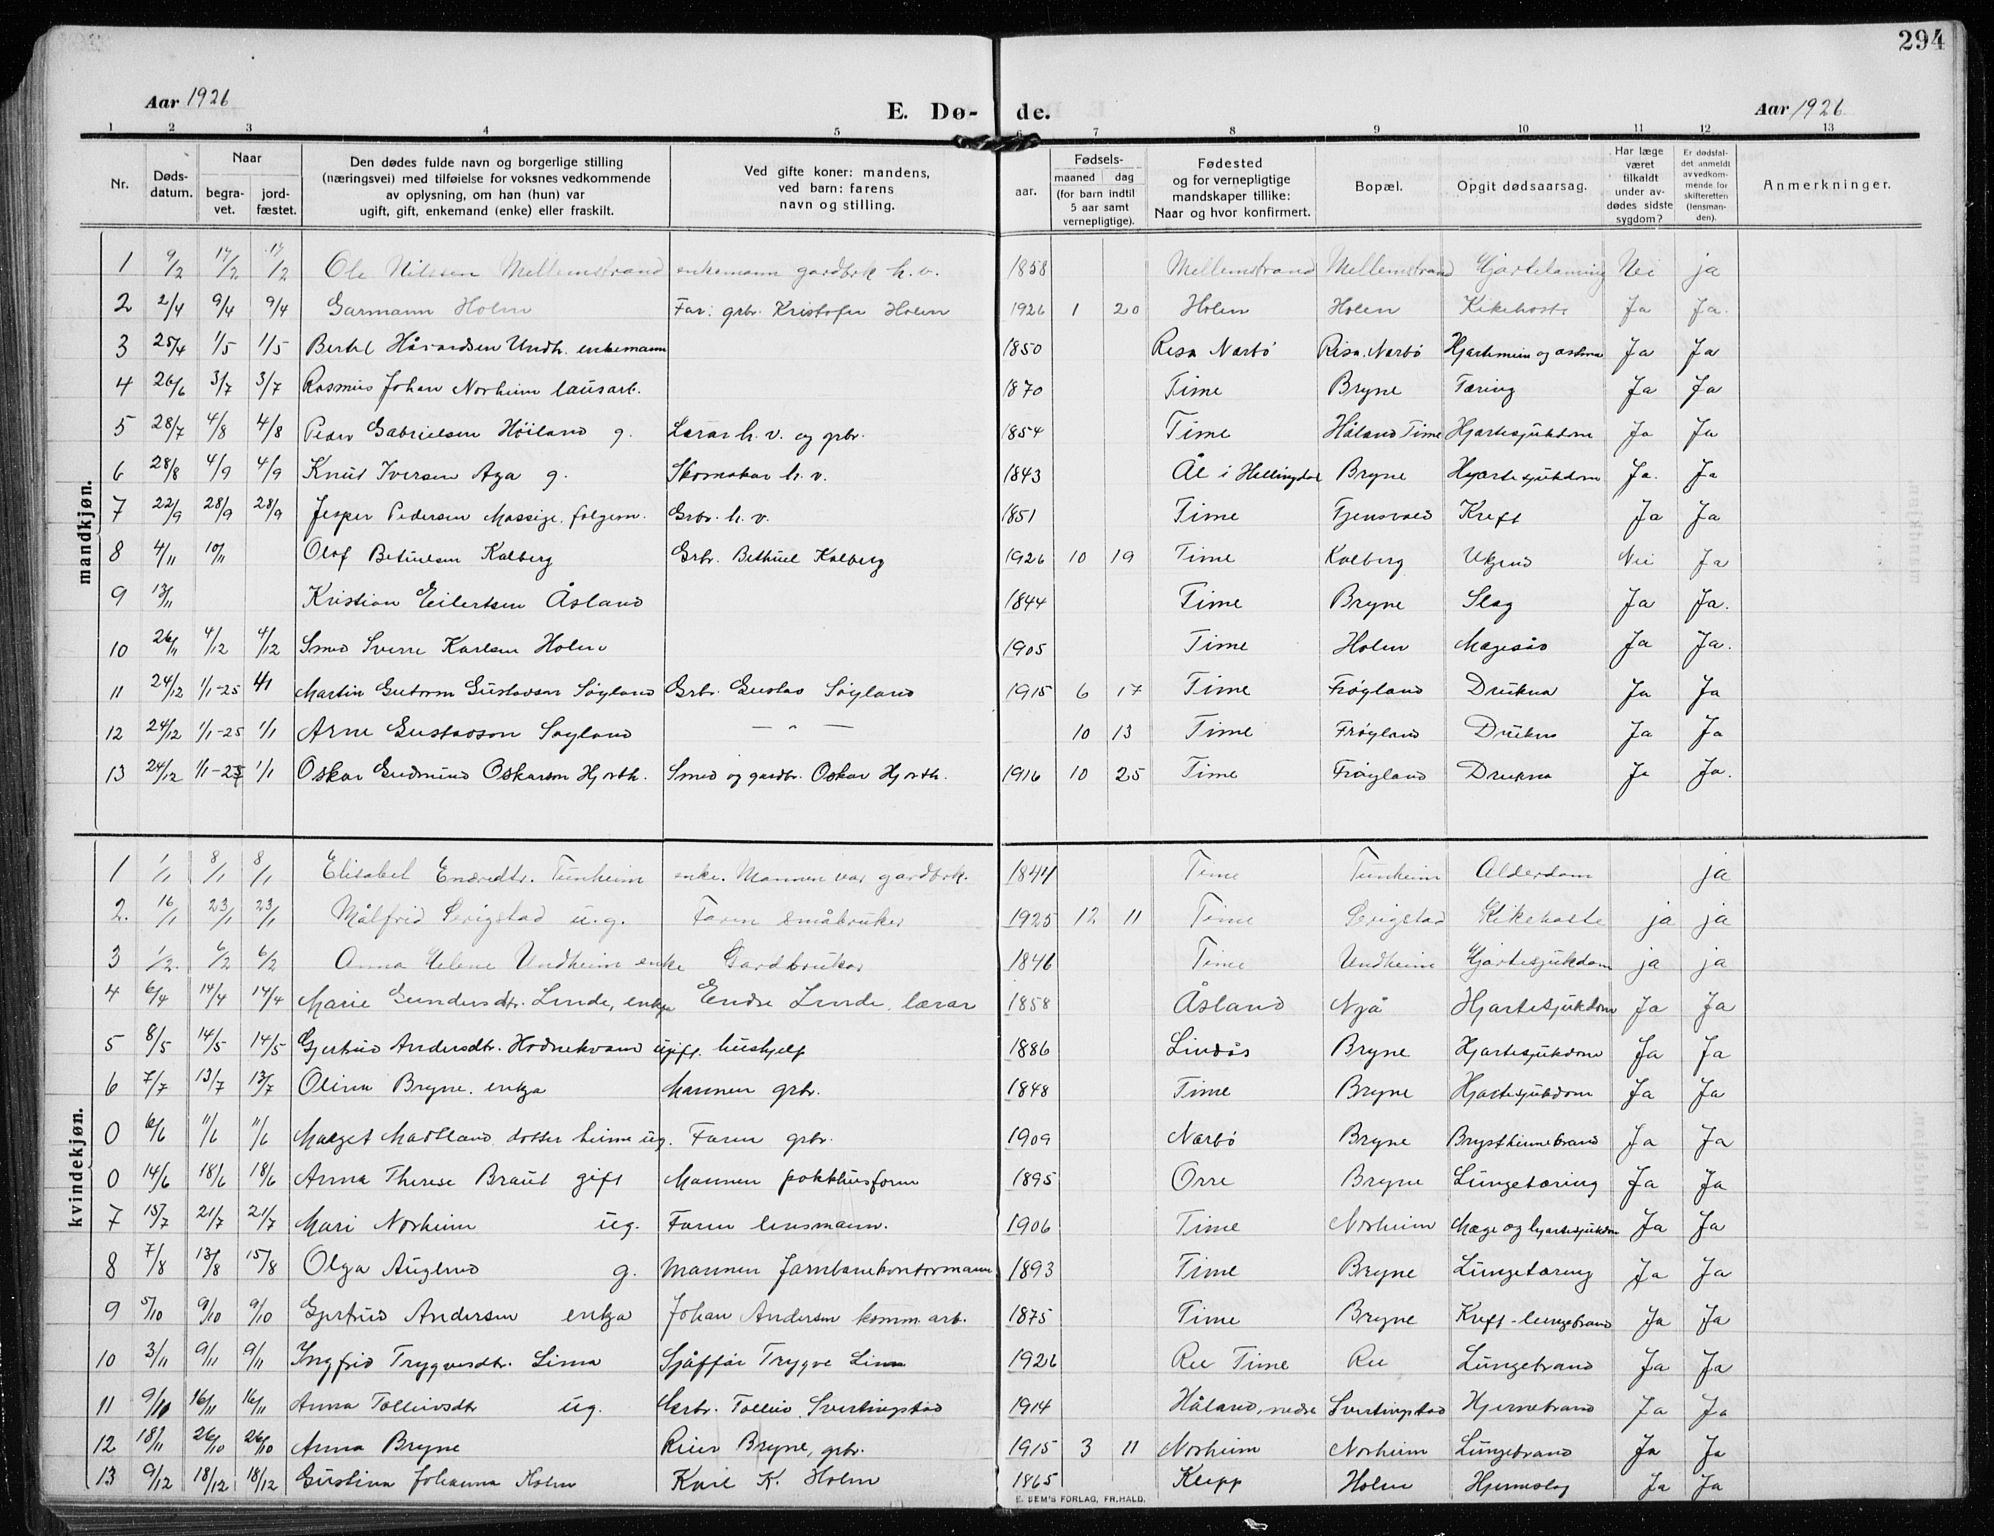 294
Aar 1926 E. Dø- de. Aar 1926
1 2 3 4 5 6 7 8 9 10 11 12 13
Nr. Døds-datum. Naar begra-vet. jord-fæstet. Den dødes fulde navn og borgerlige stilling (næringsvei) med tilføielse for voksnes vedkommende av oplysning, om han (hun) var ugift, gift, enkemand (enke) eller fraskilt. Ved gifte koner: mandens, ved barn: farens navn og stilling. aar. Fødsels- maaned dag (for barn indtil 5 aar samt vernepligtige). Fødested og for vernepligtige mandskaper tillike: Naar og hvor konfirmert. Bopæl. Opgit dødsaarsag. Har læge været tilkaldt under av-dødes sidste sygdom? Er dødsfal-det anmeldt av vedkom-mende for skifteretten (lensman-den). Anmerkninger.
mandkjøn.
1 9/2 17/2 17/2 Ole Nilssen Mellemstrand enkemann gardbrk h.v. 1858 Mellemstrand Mellemstrand Hjartelaming Nei ja
2 2/4 9/4 9/4 Garmann Holen Far: grbr. Kristofer Holen 1926 1 20 Holen Holen Kikehoste Ja Ja.
3 25/4 1/5 1/5 Bertel Håvardsen Undh. enkemann 1850 Risa Narbø Risa, Narbø Hjartemein og astma Ja Ja
4 26/6 3/7 3/7 Rasmus Johan Norheim lausarb. 1870 Time Bryne Tæring Ja Ja
5 28/7 4/8 4/8 Peder Gabrielsen Høiland g. Lærar h.v. og grbr. 1854 Time Håland Time Hjartesjukdom Ja Ja
6 28/8 4/9 4/9 Knut Iversen Aga g. Skomakar h.v. 1843 Ål i Hallingdal Bryne Hjartesjukdom Ja. Ja
7 22/9 28/9 28/9 Jesper Pedersen Mossige, folgem. Grbr. h.v. 1851 Time Tjensvold Kreft Ja Ja
8 4/11 10/11 Olaf Betuelsen Kalberg Grbr. Bethuel Kalberg 1926 10 19 Time Kalberg Ukjend Nei Ja
9 13/11 Kristian Eilertsen Åsland 1844 Time Bryne Slag Ja Ja.
10 26/11 4/12 4/12 Smed Sverre Karlsen Holen 1905 Time Holen Magesår Ja Ja.
11 24/12 1/1-25 4/1 Martin Gutorm Gustavson Søyland Grbr. Gustav Søyland 1915 6 17 Time Frøyland Drukna Ja Ja
12 24/12 1/1-25 1/1 Arne Gustavson Søyland — " — 10 13 Time Frøyland Drukna Ja Ja
13 24/12 1/1-25 1/1 Oskar Gudmund Oskarson Hjorth. Smed og gardbr. Oskar Hjorth. 1916 10 25 Time Frøyland Drukna Ja Ja.
kvindekjøn.
1 1/1 8/1 8/1 Elisabet Enæredtr. Tunheim enke. Mannen var gardbrk. 1844 Time Tunheim Alderdom ja
2. 16/1 23/1 23/1 Målfrid Serigstad u.g. Faren småbruker 1925 12 11 Time Serigstad Kikehoste ja ja
3 1/2. 6/2 6/2 Anna Helene Undheim enke Gardbrukar 1846 Time Undheim Hjartesjukdom ja ja
4 6/4 14/4 14/4 Marie Gundersdtr. Linde, enkja Endre Linde, lærar 1858 Åsland Njå Hjartesjukdom Ja Ja
5 8/5 14/5 14/5 Gjertrud Andersdtr. Hodnekvam ugift. hushjelp 1886 Lindås Bryne Hjartesjukdom Ja Ja
6 7/7 13/7 13/7 Olina Bryne. enkja Mannen grbr. 1848 Time Bryne Hjartesjukdom Ja Ja
0 6/6 11/6 11/6 Marget Madland, dotter heime ug. Faren grbr. 1909 Narbø Bryne Brysthinnebrand Ja Ja
0 14/6 18/6 18/6 Anna Therese Braut gift Mannen pakkhusform 1895 Orre Bryne Lungetæring Ja Ja
7 15/7 21/7 21/7 Mari Norheim ug. Faren lensmann. 1906 Time Norheim Mage og hjartesjukdm Ja Ja
8 7/8 13/8 15/8 Olga Auglend g. Mannen Jarnbanekontormann 1893 Time Bryne Lungetæring Ja Ja
9 5/10 9/10 9/10 Gjertrud Andersen enkja Johan Andersen komm. arb. 1875 Time Bryne Kreft-lungebrand Ja Ja
10 3/11 9/11 9/11 Ingfrid Trygvesdtr. Lima Sjåffør Trygve Lima 1926 Re Time Re Lungebrand Ja Ja
11 9/11 16/11 16/11 Anna Tolleivsdtr ug. Grbr. Tolleiv Svertingstad 1914 Håland, nedre Svertingstad Hjernebrand Ja Ja
12 18/11 26/10 26/10 Anna Bryne Reier Bryne, grbr. 1915 3 11 Norheim Norheim Lungebrand Ja Ja
13 9/12 18/12 18/12 Gustina Johanna Holen Karl K. Holen 1865 Klepp Holen Hjerneslag Ja Ja
E. SEM'S FORLAG, FR.HALD.